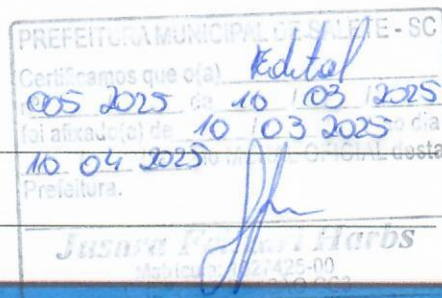 PREFEITURA MUNICIPAL DE SALETE - SC
Certificamos que o(a) Edital
005 2025 de 10 / 03 / 2025
foi afixado(a) de 10 / 03 2025 o dia
10 04 2025 MURAL OFICIAL desta
Prefeitura.
Jusara Harbs
Matrícula 27425-00